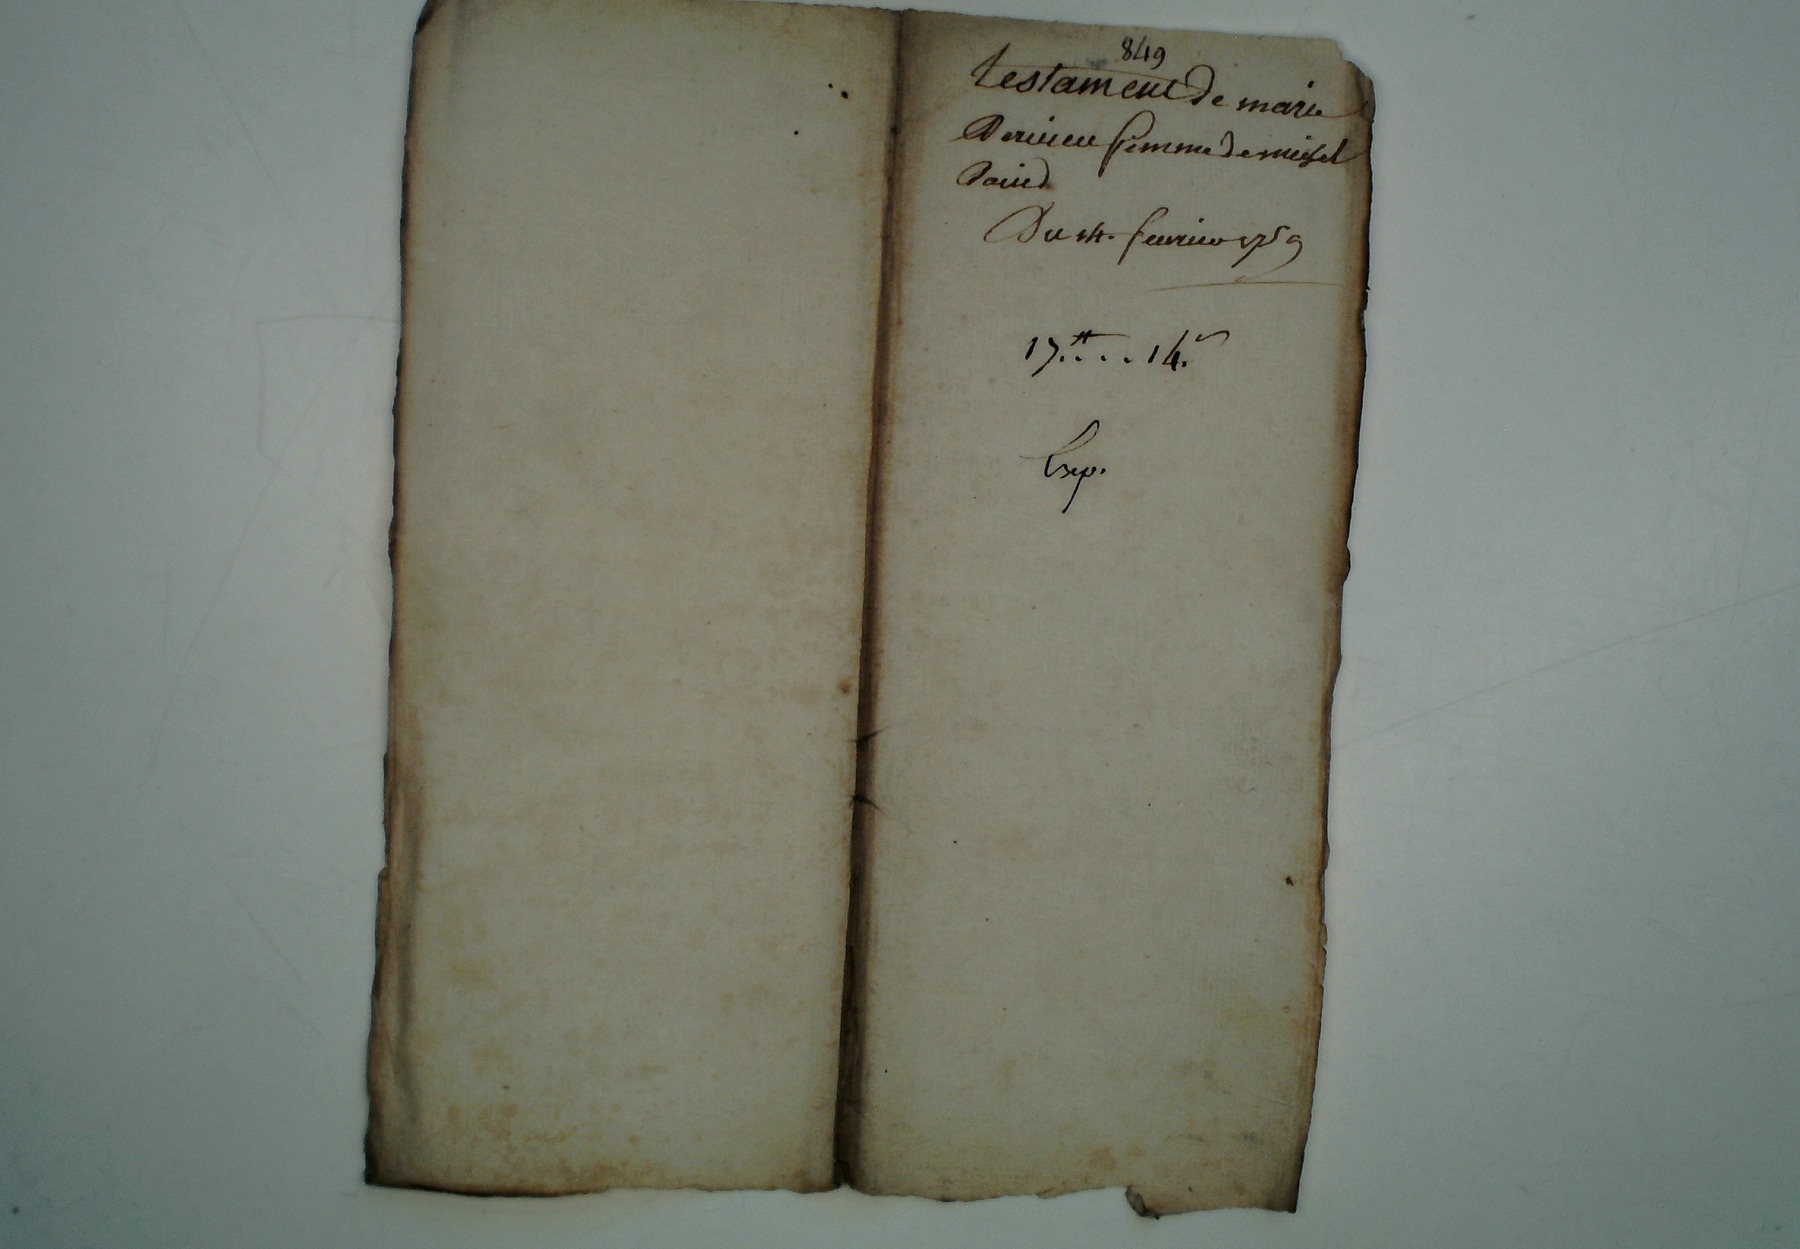 849
testament de marie
Dervieu femme de michel
David
Du 14. fevrier 1759
17.tt... 14.s
Exp.